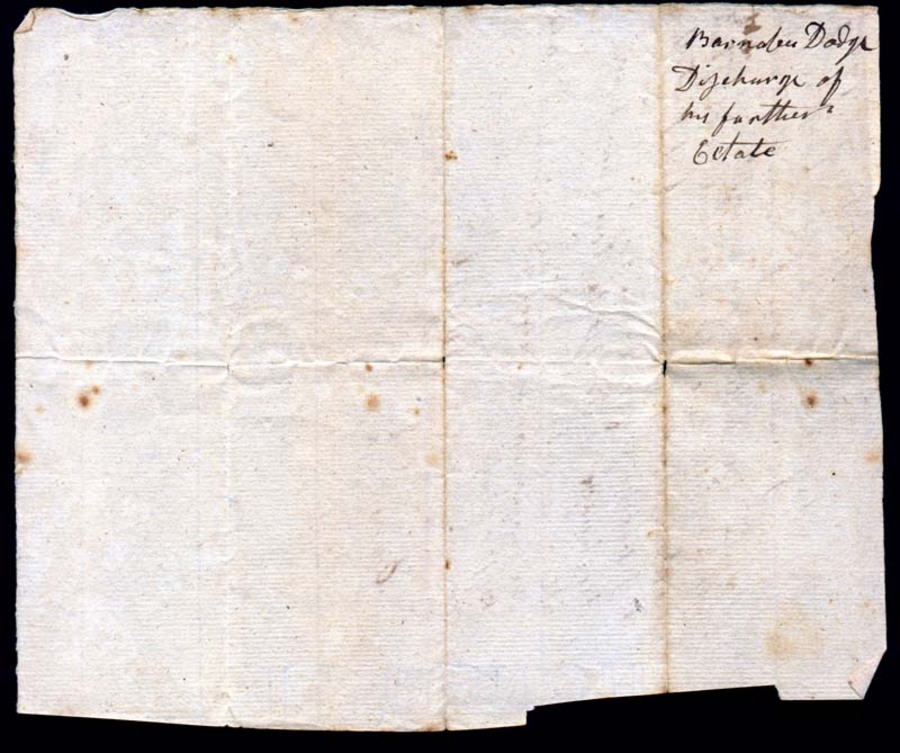 Barnabeu Dodge
Discharge of
his farthers
Estate